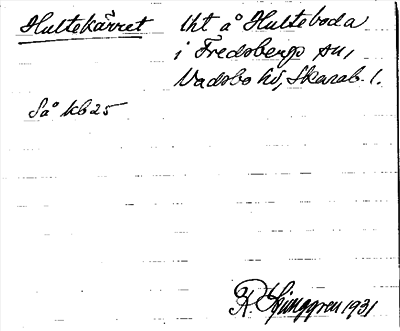 Hultekärret lht å Hulteboda
i Fredsbergs sn,
Vadsbo hd, Skarab. l.
Så kb 25
R. Ljunggren 1931